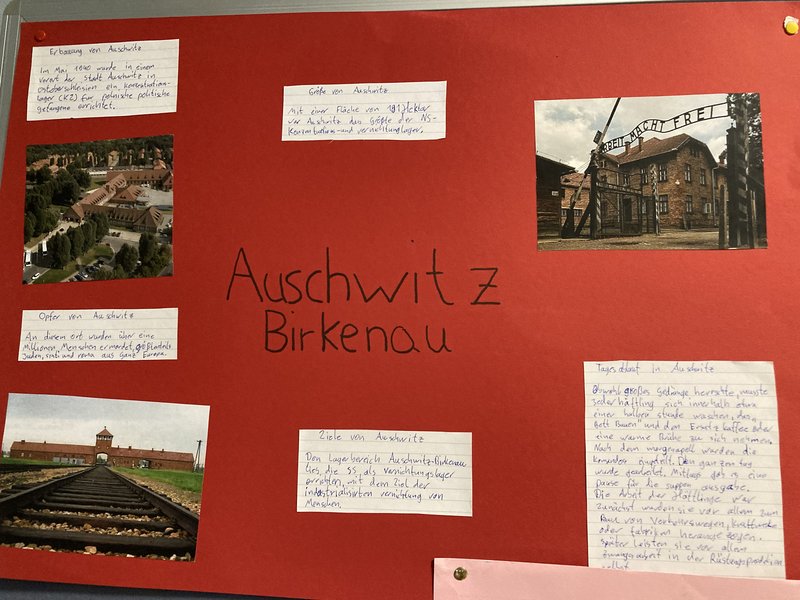 Erbauung von Auschwitz
Im Mai 1940 wurde in einem
vorort der Stadt Auschwitz in
ostoberschlesien ein konzentrations-
lager (KZ) für polnische politische
gefangene errichtet.
Größe von Auschwitz
Mit einer Fläche von 191 Hektar
war Auschwitz das Größte der NS-
Konzentrations- und vernichtungslager.
ARBEIT MACHT FREI
Auschwitz
Birkenau
Opfer von Auschwitz
An diesem ort wurden über eine
Millionen Menschen ermordet, größtenteils
Juden, sinti und roma aus ganz Europa.
Ziele von Auschwitz
Den Lagerbereich Auschwitz-Birkenau
lies, die SS, als vernichtungslager
errichten, mit dem Ziel der
industrialisierten vernichtung von
Menschen.
Tagesablauf in Auschwitz
Obwohl großes Gedänge herrschte, musste
Jeder häftling sich innerhalb etwa
einer halben stunde waschen, das
Bett Bauen" und den Ersatzkaffee oder
eine warme Brühe zu sich nehmen.
Nach dem morgenapell wurden die
komandos Den ganzen tag
wurde gearbeitet. Mittags gab es eine
pause für die suppen ausgabe.
Die Arbeit der Häftlinge war
zunächst wurden sie vor allem zum
Bau von Verkehrswegen, kraftwerke
oder fabriken herangezogen.
später leisten sie vor allem
zwangsarbeit in der Rüstungsproduktion
selbst